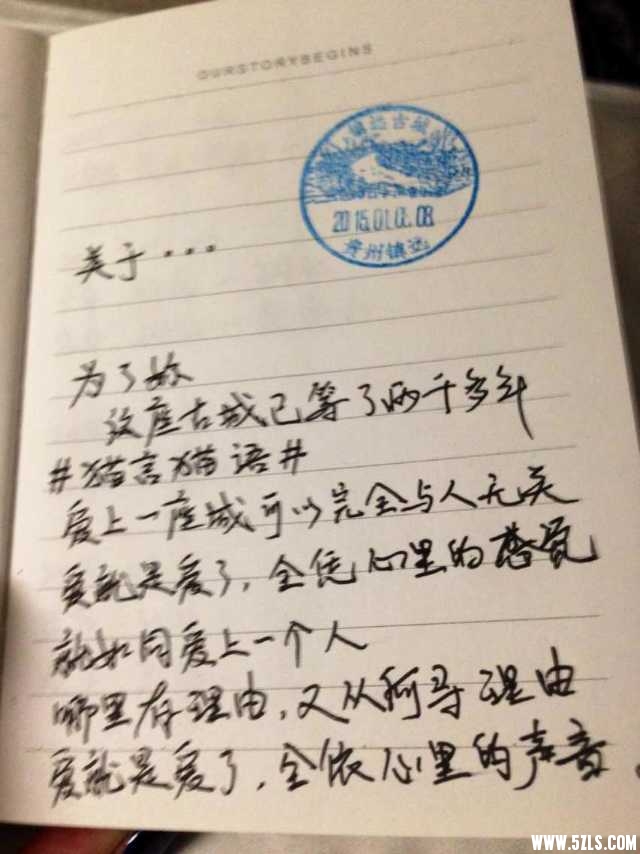 OURSTORYBEGINS
镇远古城
2015.01.03.08
贵州镇远
关于···
为了你
这座古城已等了两千多年
#猫言猫语#
爱上一座城可以完全与人无关
爱就是爱了,全凭心里的感觉
就如同爱上一个人
哪里有理由,又从何寻理由
爱就是爱了,全依心里的声音。
WWW.5ZLS.COM